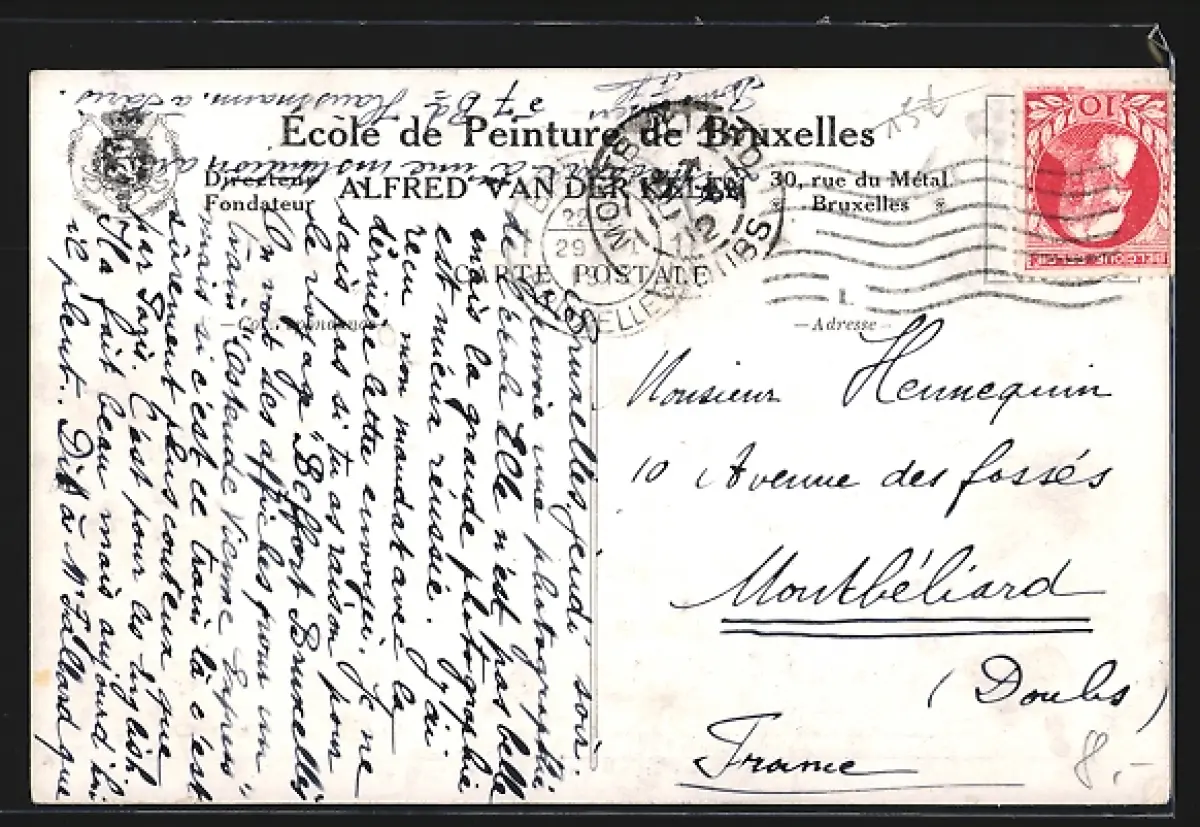 École de Peinture de Bruxelles
Directeur
Fondateur
ALFRED VAN DER KELEN
30, rue du Métal
Bruxelles
CARTE POSTALE
—Correspondance—
—Adresse—
10
1.
Monsieur Hennequin
10 Avenue des fossés
Montbéliard
(Doubs)
France
8.-
Bruxelles, jeudi soir.
une photographie
de l'école Elle n'est pas belle
mais la grande photographie
est mieux réussie. J'ai
reçu mon mandat avec la
dernière lettre envoyée. Je ne
sais pas si tu as raison pour
le voyage "Belfort Bruxelles"
On voit des affiches pour un
train "Ostende Vienne Express"
mais si c'est ce train là c'est
sûrement plus couteux que
par Paris. C'est pour les English.
Il a fait beau mais aujourd'hui
il pleut. Dis à Mr que
à une institution
7 Bd Haussmann. à Paris.